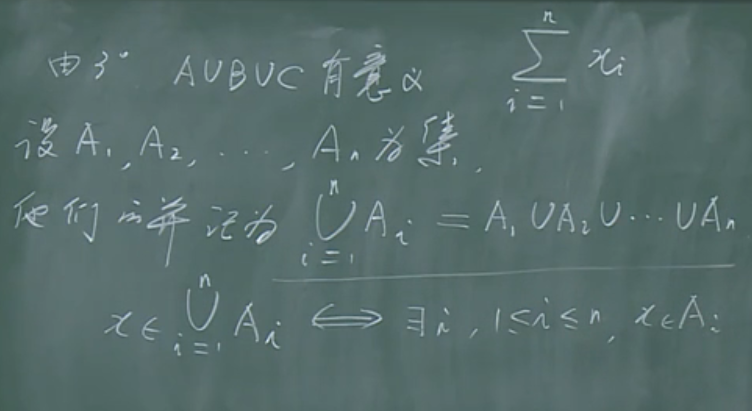 由3° A∪B∪C 有意义 \sum_{i=1}^{n} x_i
设 A₁, A₂, ⋯, Aₙ 为集,
他们的并记为 \bigcup_{i=1}^{n} A_i = A₁∪A₂∪⋯∪Aₙ
x ∈ \bigcup_{i=1}^{n} A_i ⟺ ∃i, 1≤i≤n, x∈A_i